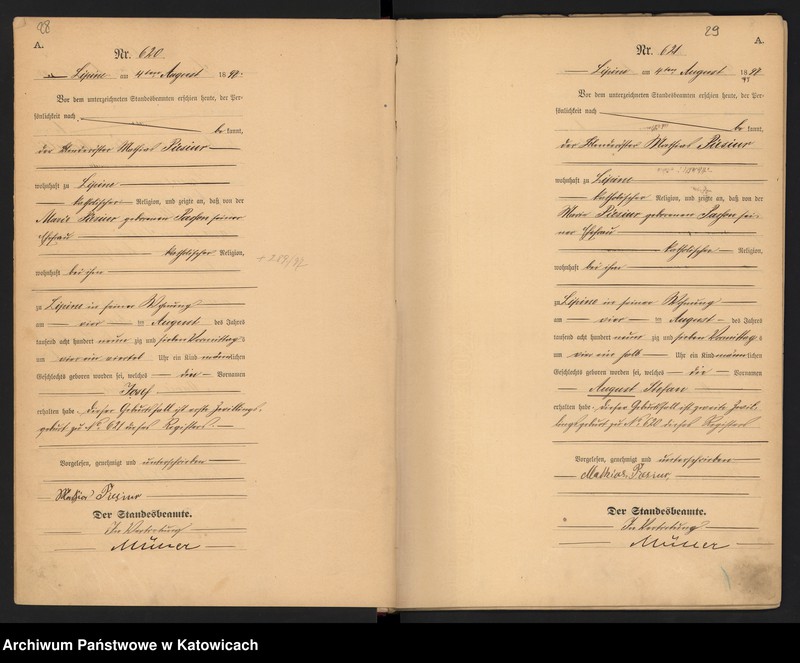 28
A.
Nr. 620
Lipine am 4ten August 1897.
Vor dem unterzeichneten Standesbeamten erschien heute, der Per-
sönlichkeit nach
be kannt,
der Mathias
wohnhaft zu Lipine
katholischer Religion, und zeigte an, daß von der
Marie geborenen seiner
Ehefrau
katholischer Religion,
wohnhaft bei ihm
zu Lipine in seiner Wohnung
am vier ten August des Jahres
tausend acht hundert neun zig und sieben Vormittags
um vier ein viertel Uhr ein Kind männlichen
Geschlechts geboren worden sei, welches die Vornamen
Josef
erhalten habe. Dieser Geburtsfall ist erste Zwillings-
geburt zu No. 621 dieses Registers.
Vorgelesen, genehmigt und unterschrieben
Mathias
Der Standesbeamte.
In Vertretung
Müller
+ 259/97
29
A.
Nr. 621
Lipine am 4ten August 1897
97
Vor dem unterzeichneten Standesbeamten erschien heute, der Per-
sönlichkeit nach
be kannt,
der Mathias
wohnhaft zu Lipine
katholischer Religion, und zeigte an, daß von der
Marie geborenen sei-
ner Ehefrau
katholischer Religion,
wohnhaft bei ihm
zu Lipine in seiner Wohnung
am vier ten August des Jahres
tausend acht hundert neun zig und sieben Vormittags
um vier ein halb Uhr ein Kind männlichen
Geschlechts geboren worden sei, welches die Vornamen
August Stefan
erhalten habe. Dieser Geburtsfall ist zweite Zwil-
lingsgeburt zu No. 620 dieses Registers
Vorgelesen, genehmigt und unterschrieben
Mathias
Der Standesbeamte.
In Vertretung
Müller
Archiwum Państwowe w Katowicach